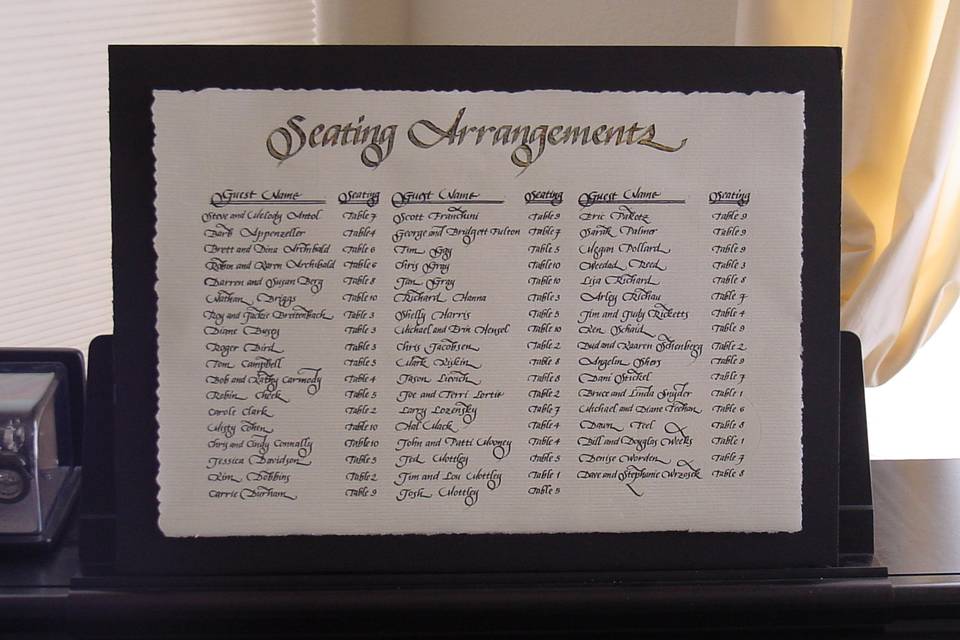 Seating Arrangements
Guest Name Seating
Steve and Melody Antol Table 7
Barb Appenzeller Table 4
Brett and Dina Archibald Table 6
Robin and Karen Archibald Table 6
Darren and Susan Berg Table 8
Nathan Briggs Table 10
Roy and Jackie Breitenbach Table 3
Diane Busey Table 3
Roger Bird Table 3
Tom Campbell Table 5
Bob and Kathy Carmody Table 4
Robin Cheek Table 5
Carole Clark Table 2
Misty Cohen Table 10
Chris and Cindy Connally Table 10
Jessica Davidson Table 5
Kim Dobbins Table 2
Carrie Durham Table 9
Guest Name Seating
Scott Franchini Table 9
George and Bridgett Fulton Table 7
Tim Gay Table 5
Chris Gray Table 10
Jan Gray Table 10
Richard Hanna Table 3
Shelly Harris Table 5
Michael and Erin Hensel Table 10
Chris Jacobsen Table 2
Mark Kiskin Table 8
Jason Lievich Table 8
Joe and Terri Lortie Table 2
Larry Lozensky Table 7
Hal Mack Table 4
John and Patti Mooney Table 4
Ted Mottley Table 5
Jim and Lou Mottley Table 1
Josh Mottley Table 5
Guest Name Seating
Eric Pakotz Table 9
Sarah Palmer Table 9
Megan Pollard Table 9
Weedad Reed Table 3
Lisa Richard Table 8
Arley Richau Table 7
Jim and Judy Ricketts Table 4
Ken Schaid Table 9
Bud and Kaaren Schenberg Table 2
Angelin Shers Table 9
Dani Stickel Table 7
Bruce and Linda Snyder Table 1
Michael and Diane Teehan Table 6
Dawn Teel Table 8
Bill and Douglas Weeks Table 1
Denise Worden Table 7
Dave and Stephanie Wrzosek Table 8